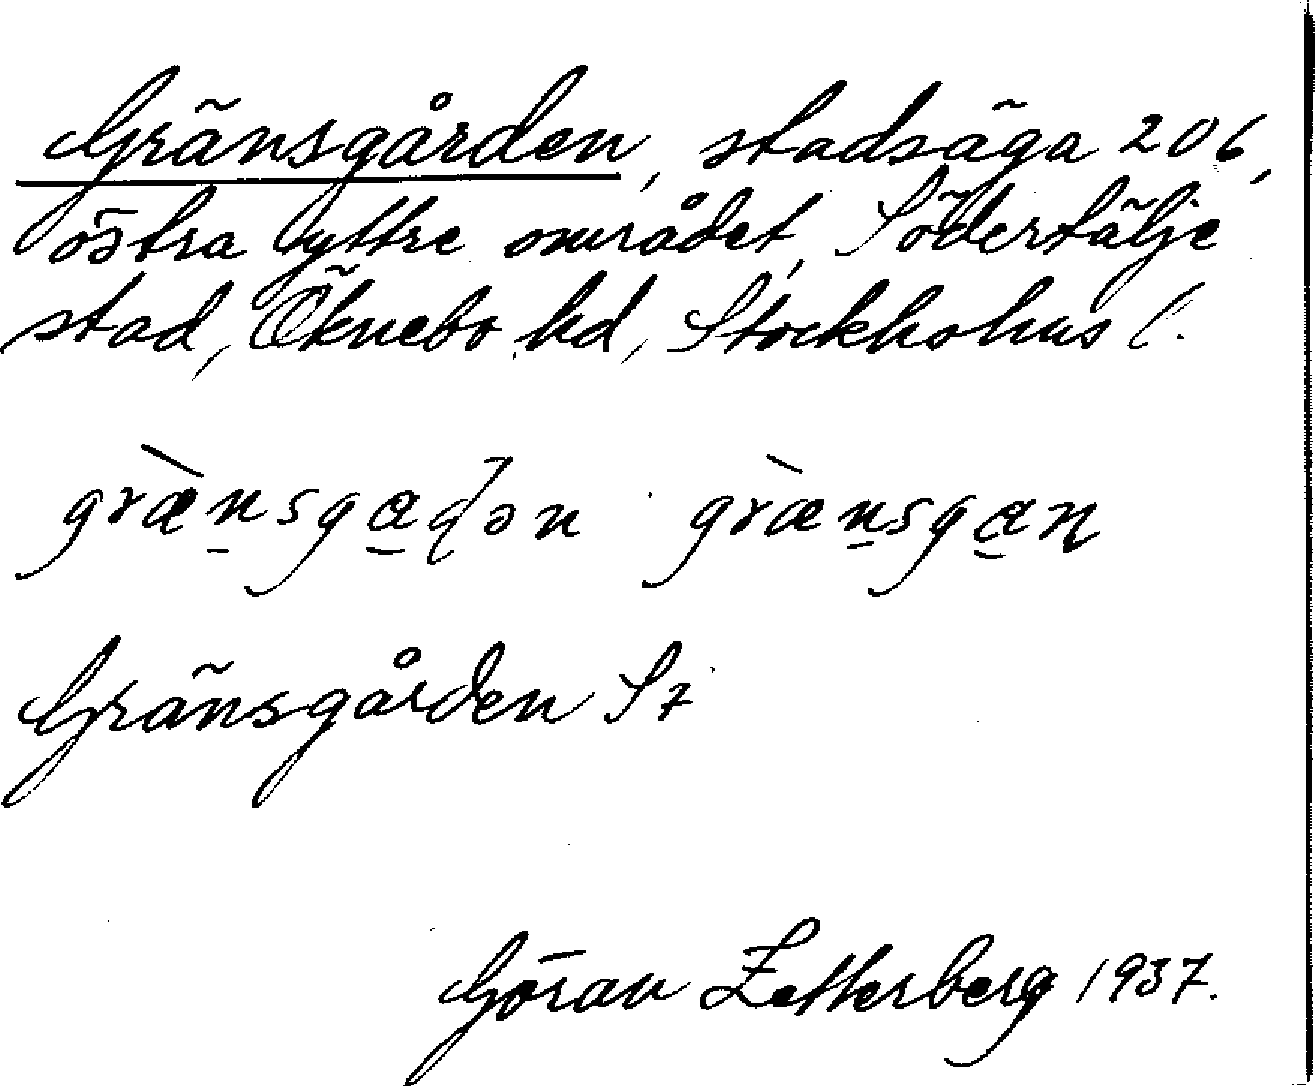 Gränsgården, stadsäga 206,
östra yttre området, Södertälje
stad, Öknebo hd, Stockholms l.
græ̀n̠sga̠ɖən græ̀n̠sga̠ɳ
Gränsgården St
Göran Zetterberg 1937.